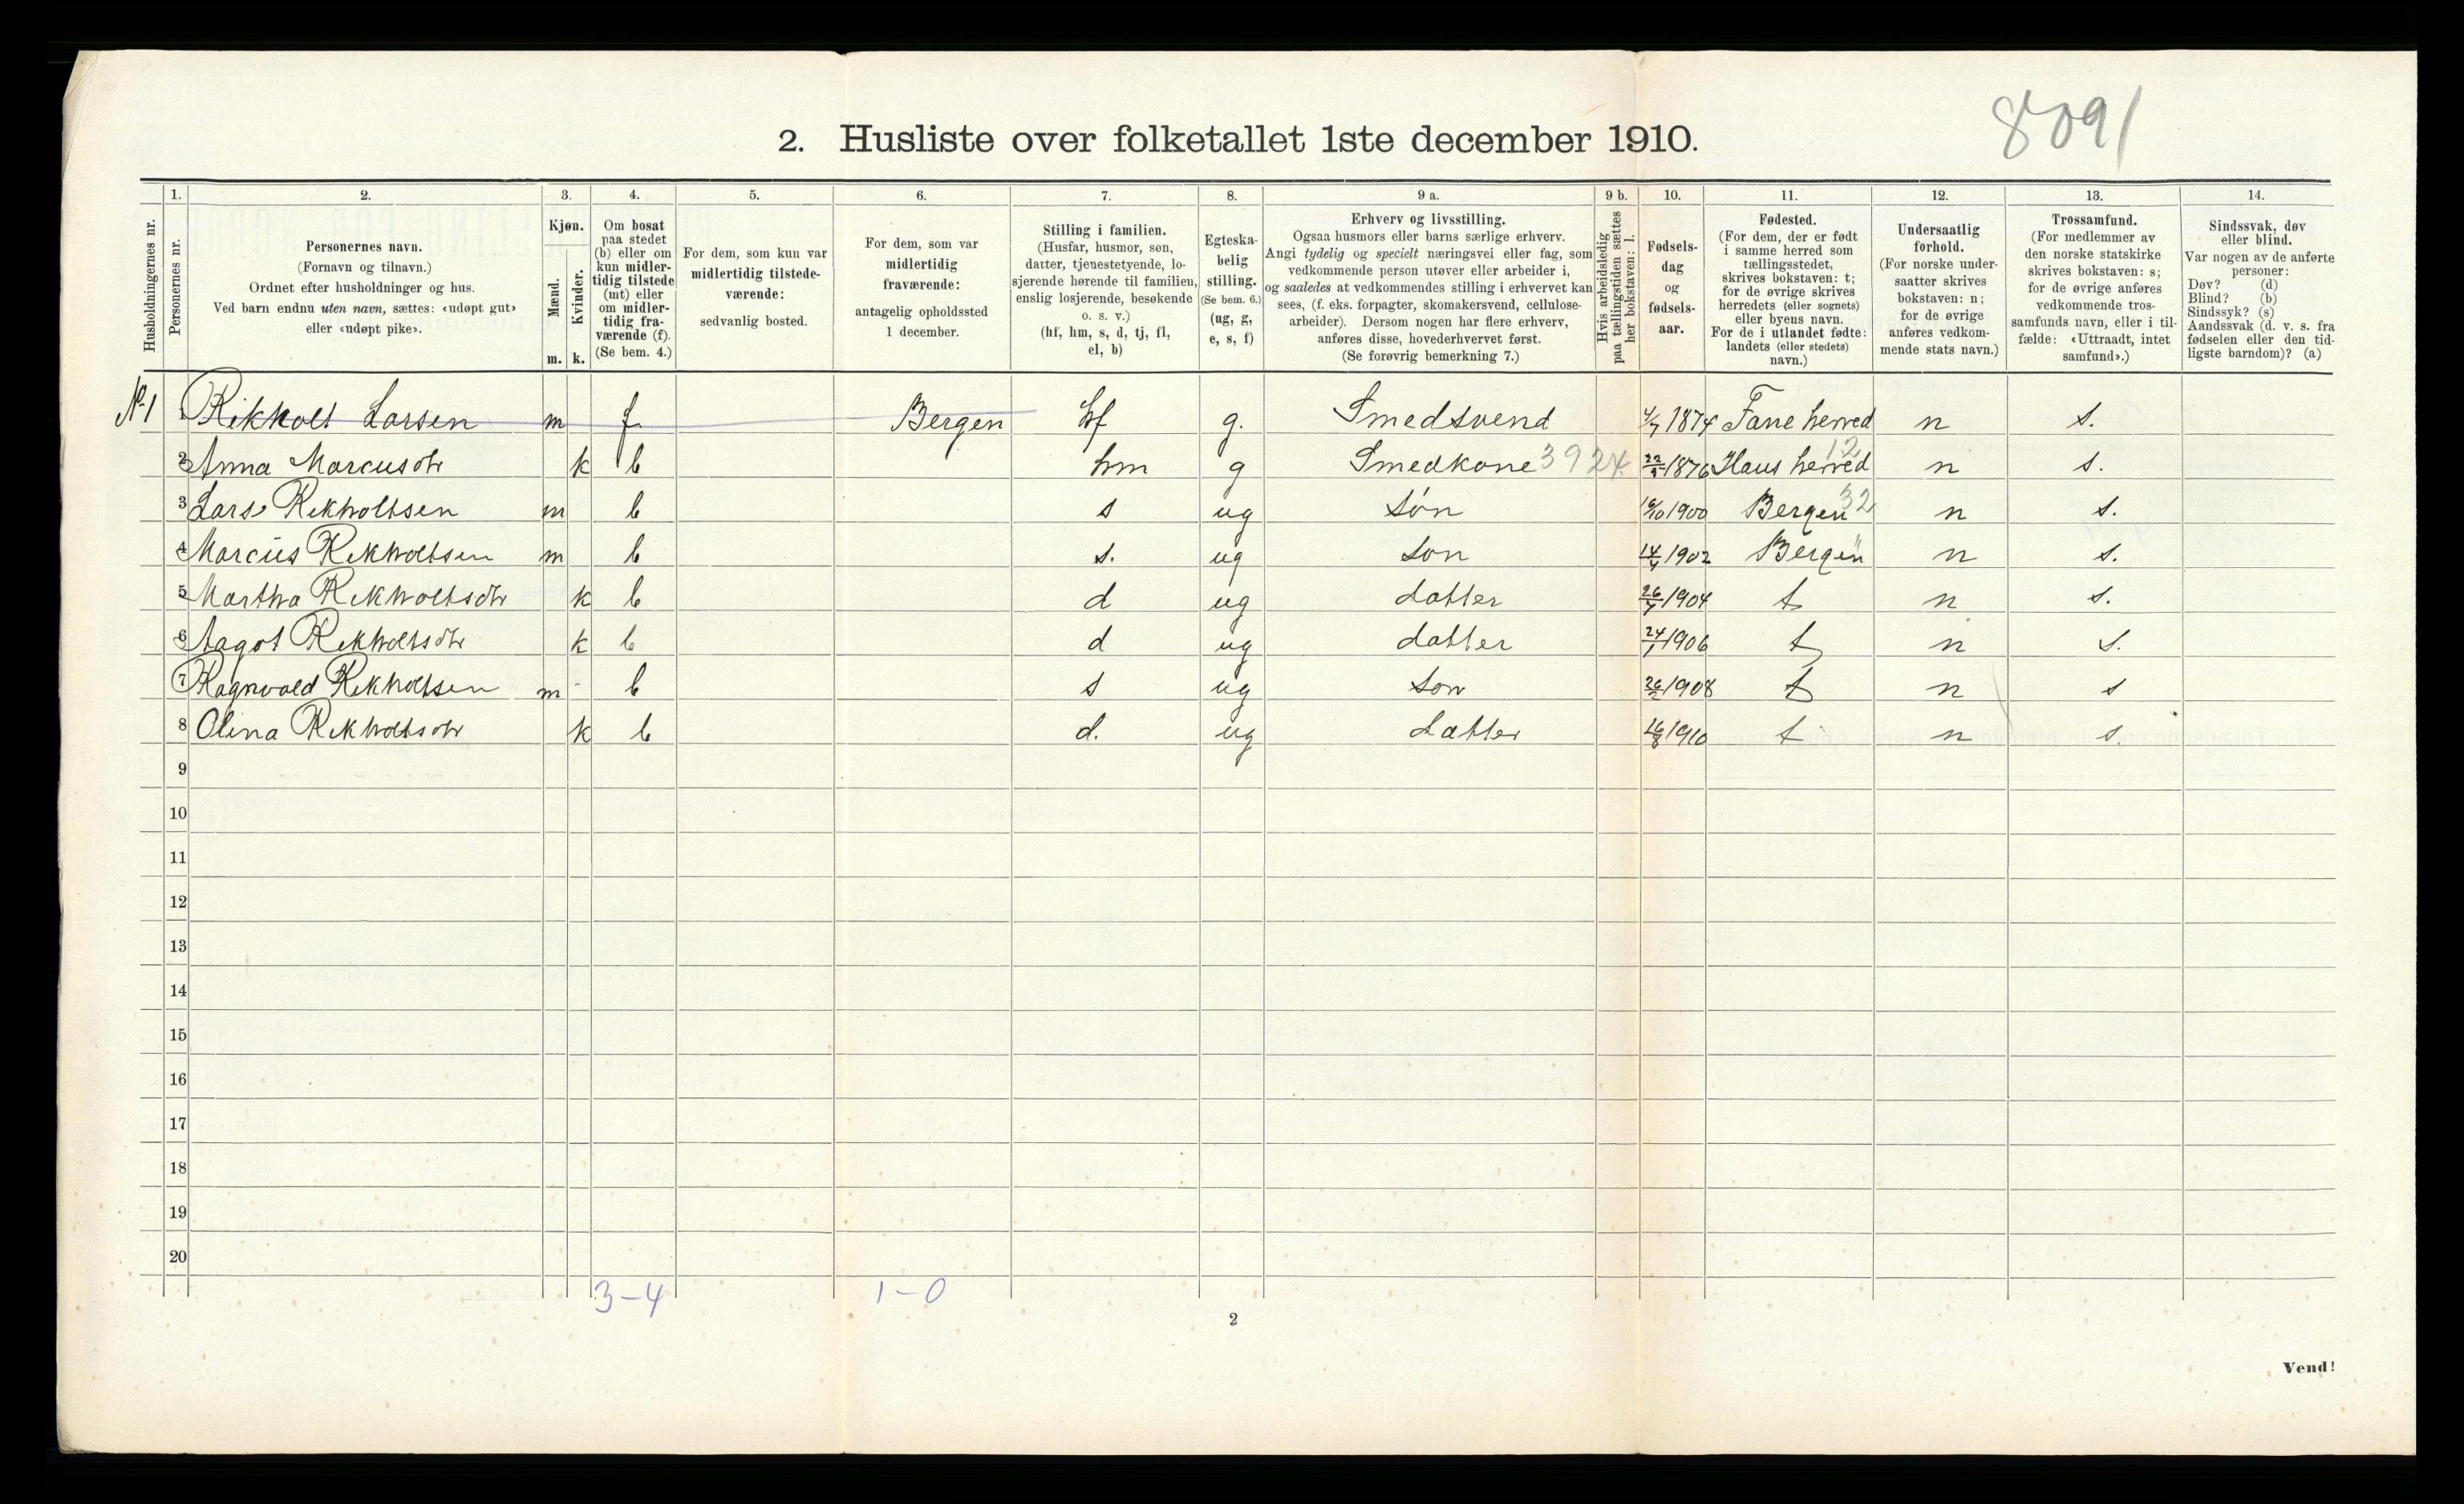 8091
2. Husliste over folketallet 1ste december 1910.
1. 2. 3. 4. 5. 6. 7. 8. 9 a. 9 b. 10. 11. 12. 13. 14.
Husholdningernes nr.
Personernes nr.
Personernes navn.
(Fornavn og tilnavn.)
Ordnet efter husholdninger og hus.
Ved barn endnu uten navn, sættes: «udøpt gut»
eller «udøpt pike».
Kjøn.
Mænd.
Kvinder.
m. k.
Om bosat
paa stedet
(b) eller om
kun midler-
tidig tilstede
(mt) eller
om midler-
tidig fra-
værende (f).
(Se bem. 4.)
For dem, som kun var
midlertidig tilstede-
værende:
sedvanlig bosted.
For dem, som var
midlertidig
fraværende:
antagelig opholdssted
1 december.
Stilling i familien.
(Husfar, husmor, søn,
datter, tjenestetyende, lo-
sjerende hørende til familien,
enslig losjerende, besøkende
o. s. v.)
(hf, hm, s, d, tj, fl,
el, b)
Egteska-
belig
stilling.
(Se bem. 6.)
(ug, g,
e, s, f)
Erhverv og livsstilling.
Ogsaa husmors eller barns særlige erhverv.
Angi tydelig og specielt næringsvei eller fag, som
vedkommende person utøver eller arbeider i,
og saaledes at vedkommendes stilling i erhvervet kan
sees, (f. eks. forpagter, skomakersvend, cellulose-
arbeider). Dersom nogen har flere erhverv,
anføres disse, hovederhvervet først.
(Se forøvrig bemerkning 7.)
Hvis arbeidsledig
paa tællingstiden sættes
her bokstaven: l.
Fødsels-
dag
og
fødsels-
aar.
Fødested.
(For dem, der er født
i samme herred som
tællingsstedet,
skrives bokstaven: t;
for de øvrige skrives
herredets (eller sognets)
eller byens navn.
For de i utlandet fødte:
landets (eller stedets)
navn.)
Undersaatlig
forhold.
(For norske under-
saatter skrives
bokstaven: n;
for de øvrige
anføres vedkom-
mende stats navn.)
Trossamfund.
(For medlemmer av
den norske statskirke
skrives bokstaven: s;
for de øvrige anføres
vedkommende tros-
samfunds navn, eller i til-
fælde: «Uttraadt, intet
samfund».)
Sindssvak, døv
eller blind.
Var nogen av de anførte
personer:
Døv? (d)
Blind? (b)
Sindssyk? (s)
Aandssvak (d. v. s. fra
fødselen eller den tid-
ligste barndom)? (a)
No 1 1 Rikholt Larsen m f. Bergen hf g. Smedsvend 4/7 1874 Fane herred n s.
2 Anna Marcusdtr k b hm g Smedkone 3924 1876 Haus herred 12 n s.
3 Lars Rekholtsen m b s ug søn 1900 Bergen 32 n s.
4 Marcus Rekholtsen m b s. ug søn 1902 Bergen " n s.
5 Martha Rekholtsdtr k b d ug datter 1904 t n s.
6 Aagot Rekholtsdtr k b d ug datter 24/1 1906 t n s.
7 Ragnvald Rekholtsen m b s ug søn 26/2 1908 t n s
8 Olina Rekholtsdtr k b d. ug datter 16/8 1910 t n s.
9
10
11
12
13
14
15
16
17
18
19
20
3-4 1-0
2
Vend!